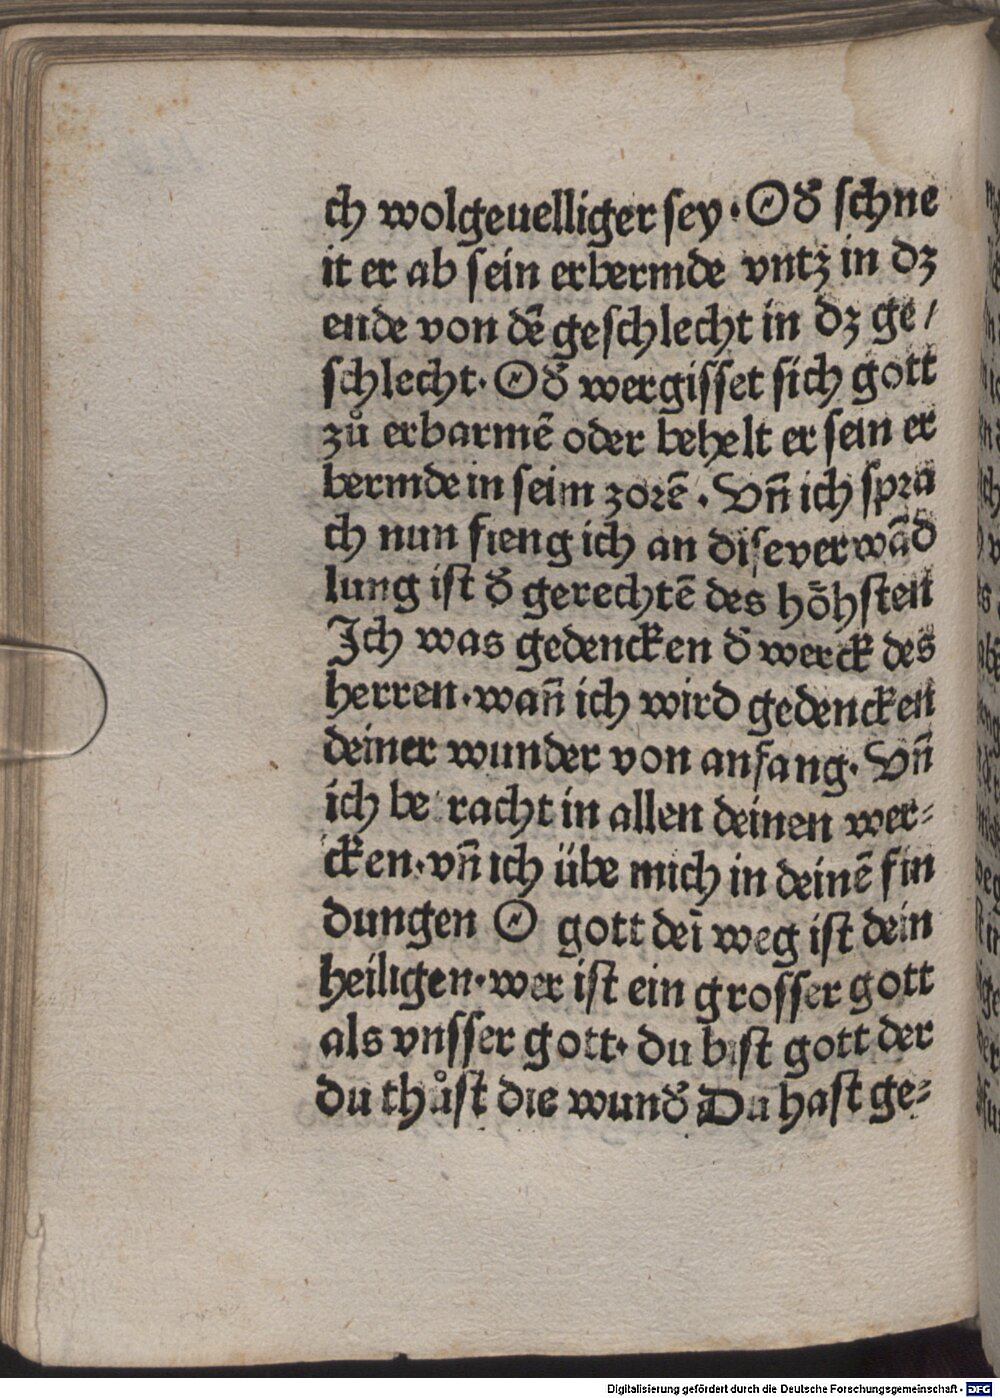 ch wolgeuelliger sey · Od᷎ schne
it er ab sein erbermde vntz in dz
ende von dē geschlecht in dz ge/
schlecht · Od᷎ wergisset sich gott
zů erbarmē oder behelt er sein er
bermde in seim zorē . Vn̄ ich spra
ch nun fieng ich an dise verwād
lung ist d᷎ gerechtē des höhsten
Jch was gedencken d᷎ werck des
herren · wan̄ ich wird gedencken
deiner wunder von anfang · Vn̄
ich be racht in allen deinen wer⸗
cken · vn̄ ich übe mich in deinē fin
dungen O gott dei̅ weg ist dein
heiligen · wer ist ein grosser gott
als vnsser gott · du bist gott der
du thůst die wund᷎ Du hast ge⸗
Digitalisierung gefördert durch die Deutsche Forschungsgemeinschaft - DFG